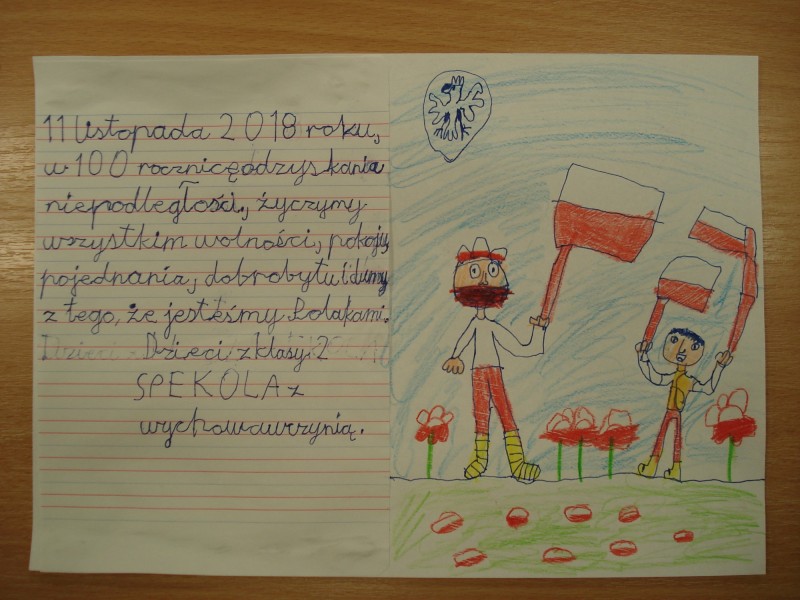 11 listopada 2018 roku,
w 100 rocznicę odzyskania
niepodległości, życzymy
wszystkim wolności, pokoju,
pojednania, dobrobytu i dumy
z tego, że jesteśmy Polakami.
Dzieci Dzieci z klasy 2
SPEKOLA z
wychowawczynią.